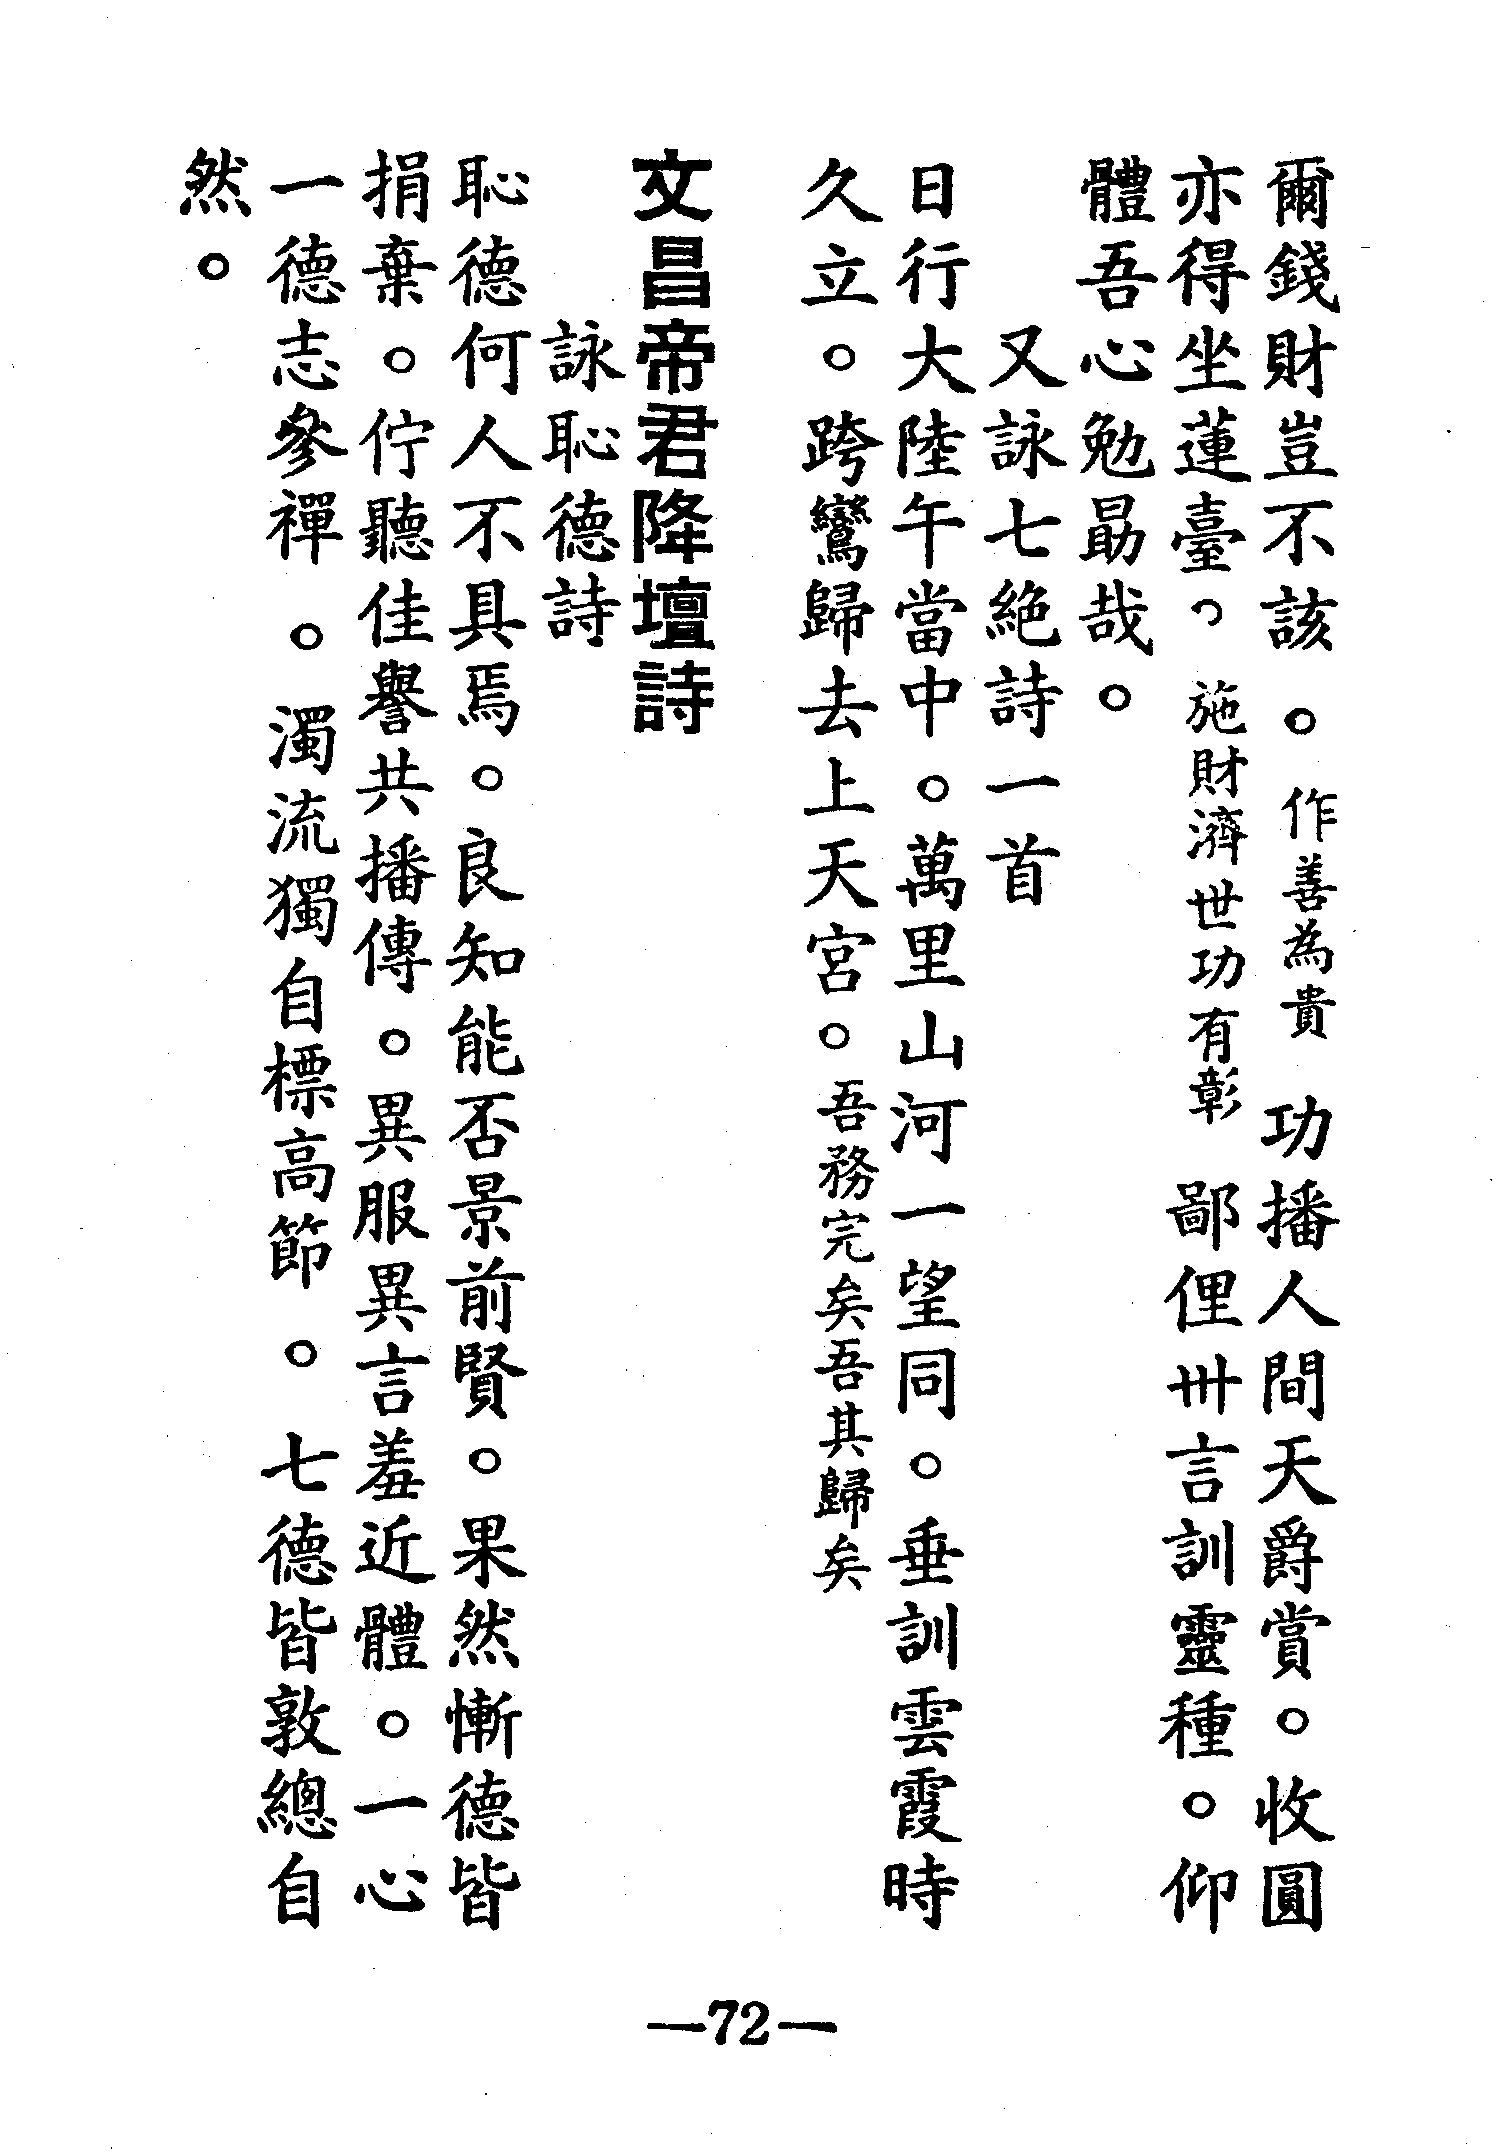 爾錢財豈不該。作善為貴功播人間天爵賞。收圓
亦得坐蓮臺。施財濟世功有彰鄙俚卅言訓靈種。仰
體吾心勉勗哉。
又詠七絕詩一首
日行大陸午當中。萬里山河一望同。垂訓雲霞時
久立。跨鸞歸去上天宮。吾務完矣吾其歸矣
文昌帝君降壇詩
詠恥德詩
恥德何人不具焉。良知能否景前賢。果然慚德皆
捐棄。佇聽佳譽共播傳。異服異言羞近體。一心
一德志參禪。濁流獨自標高節。七德皆敦總自
然。
—72—